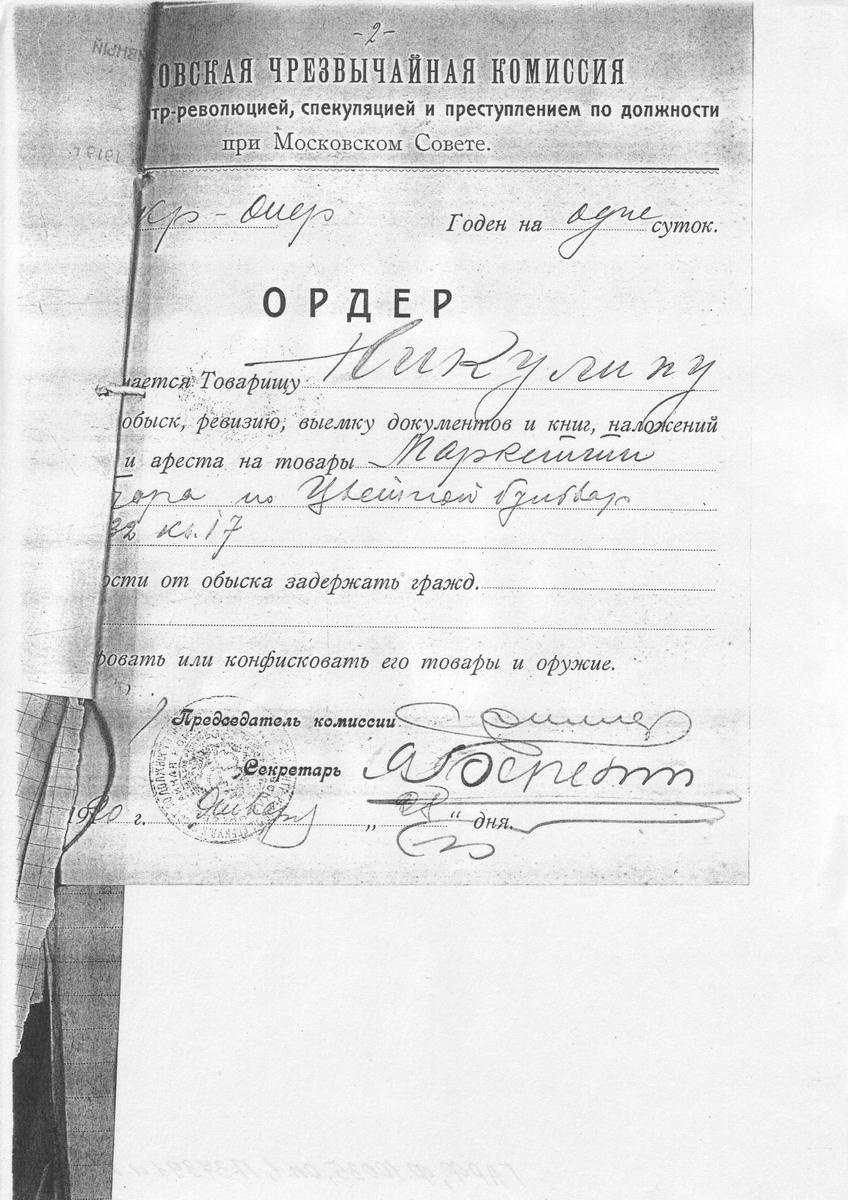 -2-
ОВСКАЯ ЧРЕЗВЫЧАЙНАЯ КОМИССИЯ
тр-революцией, спекуляцией и преступлением по должности
при Московском Совете.
Годен на одне суток.
ОРДЕР
ается Товарищу Никулину
обыск, ревизию, выемку документов и книг, наложений
и ареста на товары
по Цветной бульвар
32 кв. 17
ости от обыска задержать гражд.
овать или конфисковать его товары и оружие.
Председатель комиссии
Секретарь
1920 г. Января „ “ дня.